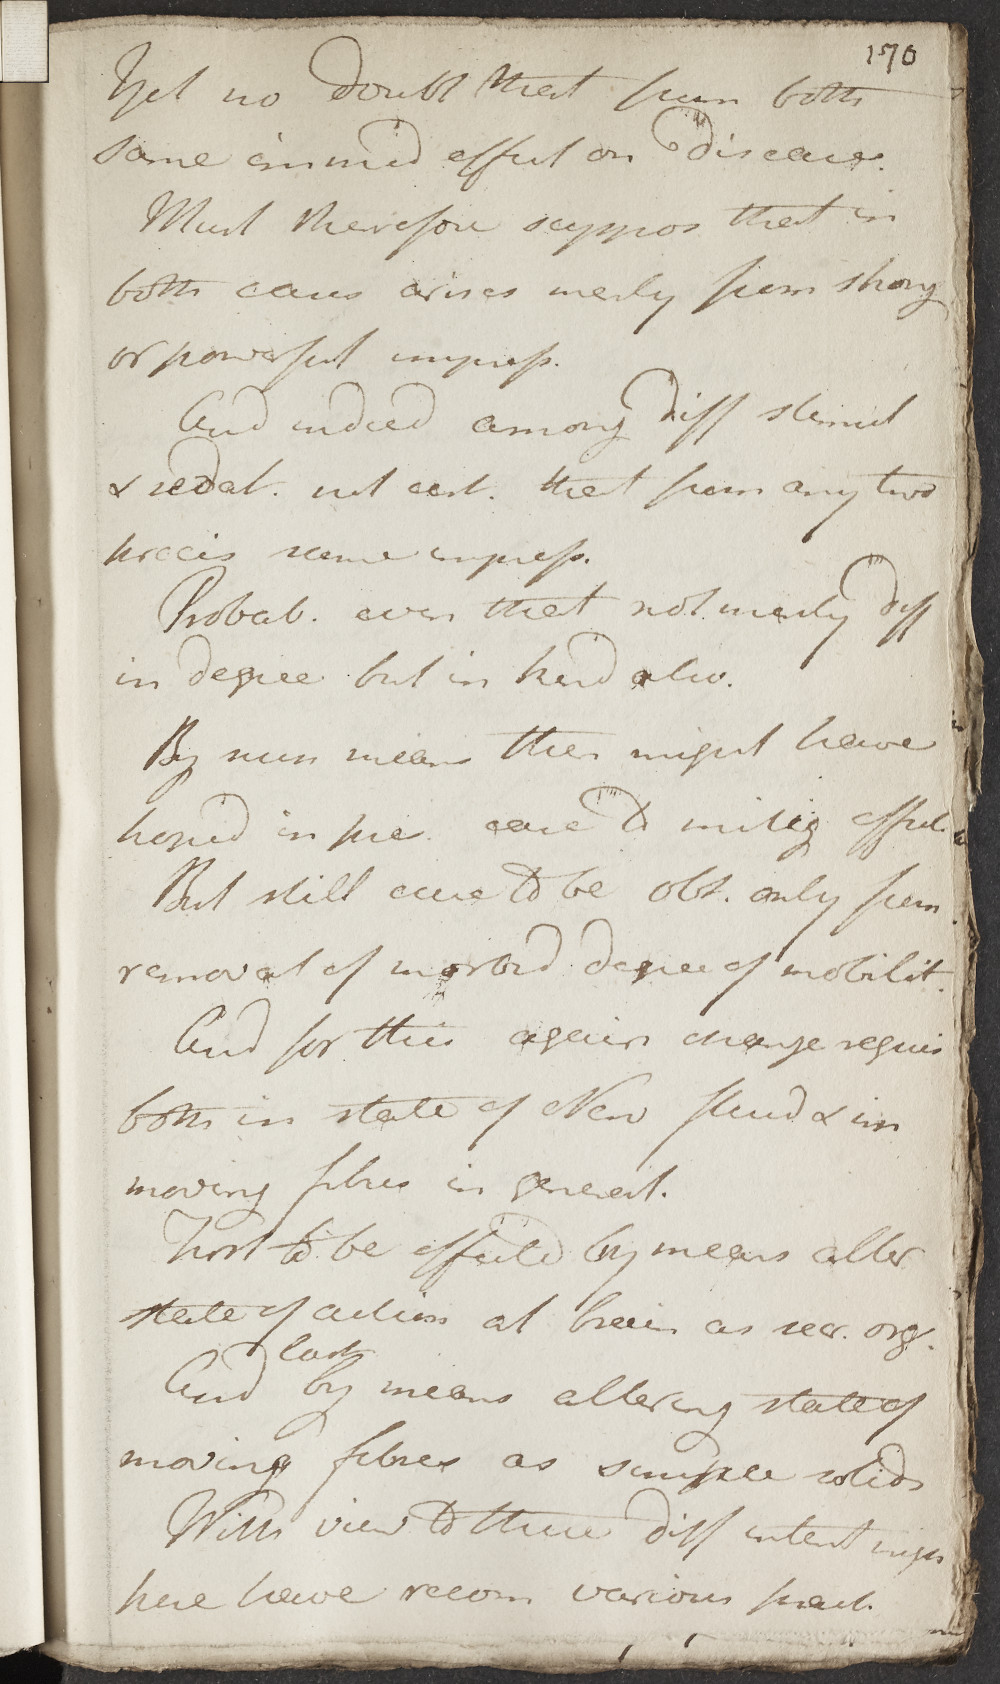 170
Yet no doubt that from both
same immed effect on disease.
Must therefore suppos that in
both caus arises merly from strong
or powerful impress.
And indeed among diff stimul
& sedat. not cert. that from any two
precis same impress.
Probab. even that not merly diff
in degree but in kind also.
By such means then might have
hoped in pre. case to mitig effect
But still cure to be obt. only from
removal of morbid degree of mobilit.
And for this again change requis
both in state of Nerv fluid & in
moving fibres in general.
First to be effected by means alter
state of action at brain as secr. org.
And last by means altering state of
moving fibres as simple solids
With view to these diff intent might
here have recom various pract.